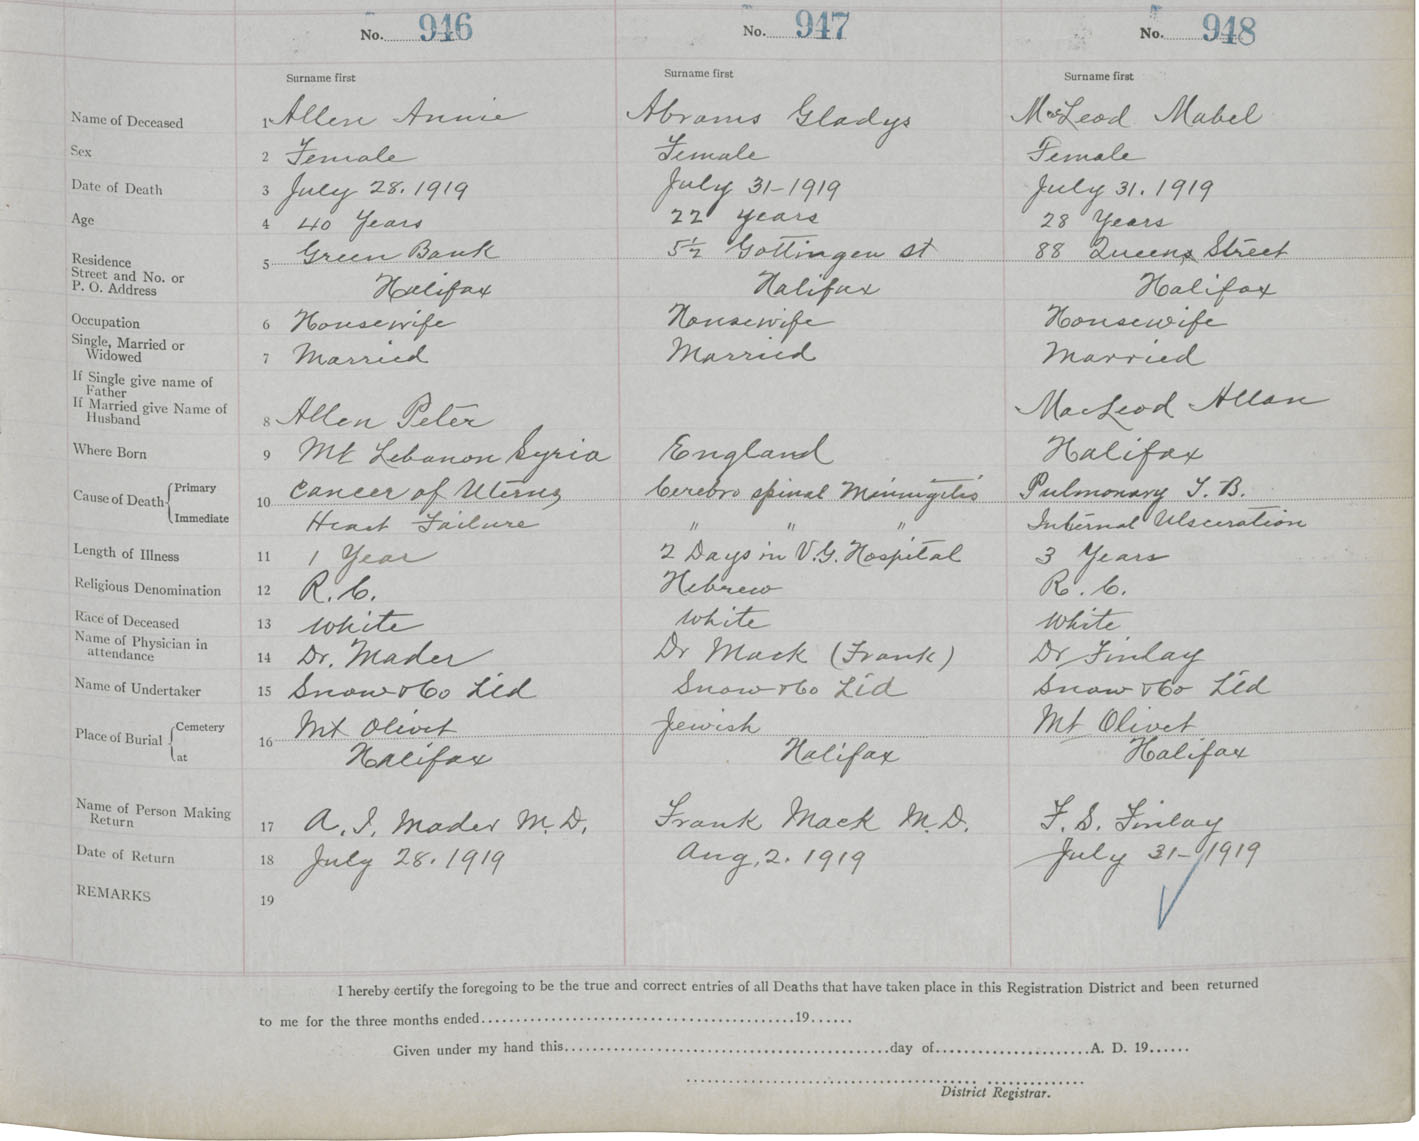 No. 946 No. 947 No. 948
Surname first Surname first Surname first
Name of Deceased 1 Allen Annie Abrams Gladys McLeod Mabel
Sex 2 Female Female Female
Date of Death 3 July 28. 1919 July 31-1919 July 31. 1919
Age 4 40 Years 22 years 28 Years
Residence
Street and No. or
P. O. Address
5 Green Bank 5½ Gottingen St 88 Queens Street
Halifax Halifax Halifax
Occupation 6 Housewife Housewife Housewife
Single, Married or
Widowed
7 Married Married Married
If Single give name of
Father
If Married give Name of
Husband
8 Allen Peter MacLeod Allan
Where Born 9 Mt Lebanon Syria England Halifax
Cause of Death Primary 10 Cancer of Uterus Cerebro spinal Miningitis Pulmonary T. B.
Immediate Heart Failure " " " Internal Ulsceration
Length of Illness 11 1 Year 2 Days in V.G. Hospital 3 Years
Religious Denomination 12 R. C. Hebrew R. C.
Race of Deceased 13 White White White
Name of Physician in
attendance
14 Dr. Mader Dr Mack (Frank) Dr Finlay
Name of Undertaker 15 Snow & Co Ltd Snow & Co Ltd Snow & Co Ltd
Place of Burial Cemetery 16 Mt Olivet Jewish Mt Olivet
at Halifax Halifax Halifax
Name of Person Making
Return
17 A. I. Mader M. D. Frank Mack M. D. F. S. Finlay
Date of Return 18 July 28. 1919 Aug, 2. 1919 July 31-1919
REMARKS 19
I hereby certify the foregoing to be the true and correct entries of all Deaths that have taken place in this Registration District and been returned
to me for the three months ended 19
Given under my hand this day of A. D. 19
District Registrar.